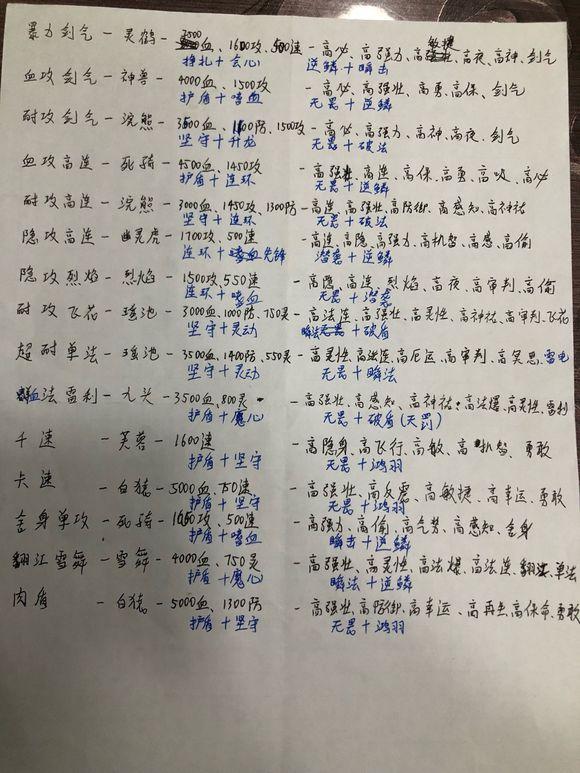 暴力剑气 - 灵鹤 - 3500血、1600攻、500速 - 高必、高强力、高敏捷、高夜、高神、剑气
挣扎 + 会心 逆鳞 + 瞬击
血攻剑气 - 神兽 - 4000血、1500攻 - 高必、高强壮、高勇、高保、剑气
护盾 + 嗜血 无畏 + 逆鳞
耐攻剑气 - 浣熊 - 3500血、1100防、1500攻 - 高必、高强力、高神、高夜、剑气
坚守 + 升龙 无畏 + 破法
血攻高连 - 死骑 - 4500血、1450攻 - 高强壮、高连、高保、高勇、高吸、高必
护盾 + 连环 无畏 + 逆鳞
耐攻高连 - 浣熊 - 3000血、1450攻、1300防 - 高连、高强壮、高防御、高感知、高神祐
坚守 + 连环 无畏 + 破法
隐攻高连 - 幽灵虎 - 1700攻、500速 - 高连、高隐、高强力、高机智、高感、高偷
连环 + 先锋 潜袭 + 逆鳞
隐攻烈焰 - 烈焰 - 1500攻、550速 - 高隐、高连、烈焰、高夜、高审判、高偷
连环 + 嗜血 无畏 + 潜袭
耐攻飞花 - 瑶池 - 3000血、1000防、750灵 - 高法连、高强壮、高灵性、高神祐、高审判、飞花
坚守 + 灵动 瞬法 + 破盾
超耐单法 - 瑶池 - 3500血、1400防、550灵 - 高灵性、高法连、高厄运、高审判、高冥思、雷电
坚守 + 灵动 无畏 + 瞬法
血法雷利 - 九头 - 3500血、800灵 - 高强壮、高感知、高神祐、高法爆、高灵性、雷利
护盾 + 魔心 无畏 + 破盾(天罚)
千速 - 芙蓉 - 1600速 - 高隐身、高飞行、高敏、高机智、勇敢
护盾 + 坚守 无畏 + 鸿羽
卡速 - 白猿 - 5000血、750速 - 高强壮、高反震、高敏捷、高幸运、勇敢
护盾 + 坚守 无畏 + 鸿羽
金身单攻 - 死骑 - 1650攻、500速 - 高强力、高偷、高气势、高感知、金身
护盾 + 嗜血 瞬击 + 逆鳞
翻江雪舞 - 雪舞 - 4000血、750灵 - 高强壮、高灵性、高法爆、高法连、翻江、单法
护盾 + 魔心 瞬法 + 逆鳞
肉盾 - 白猿 - 5000血、1300防 - 高强壮、高防御、高幸运、高再生、高保命、勇敢
护盾 + 坚守 无畏 + 鸿羽